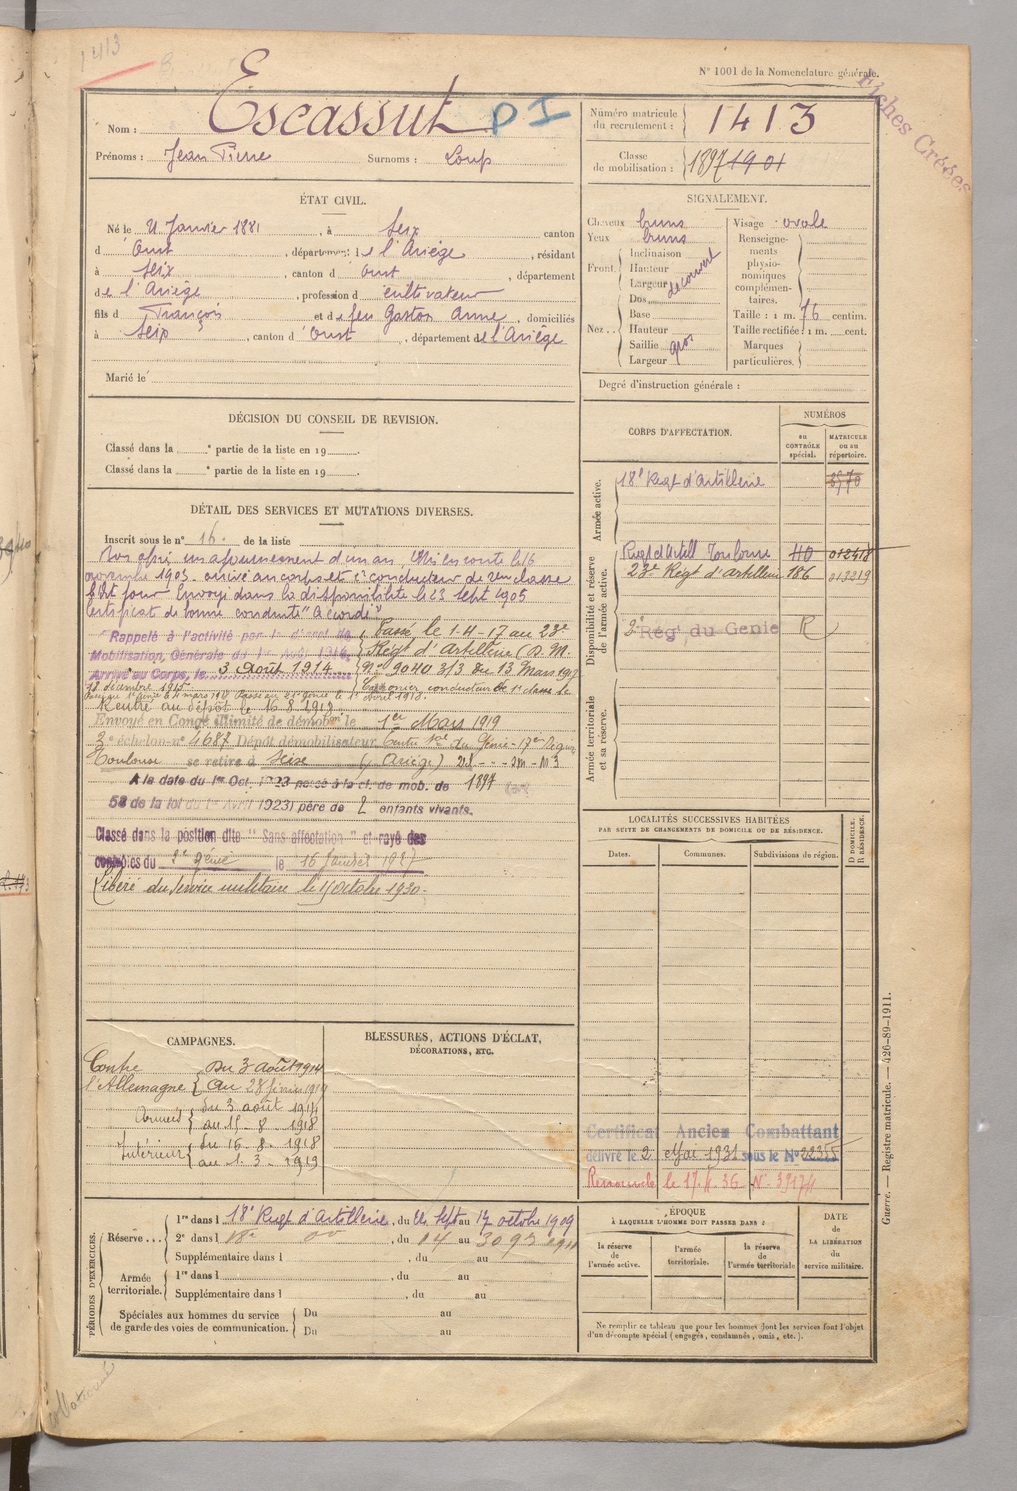 1413
N° 1001 de la Nomenclature générale.
Fiches Créées
Nom : Escassut PI
Prénoms : Jean Pierre Surnoms : Loup
Numéro matricule du recrutement : 1413
Classe de mobilisation : 1897 1901
ÉTAT CIVIL.
Né le 4 Janvier 1881, à Seix canton
d Oust, département de l'Ariège, résidant
à Seix, canton d Oust, département
de l'Ariège, profession d cultivateur
fils d François et de feu Gaston Anne, domiciliés
à Seix, canton d Oust, département de l'Ariège
Marié le
SIGNALEMENT.
Cheveux bruns
Yeux bruns
Front Inclinaison
Hauteur
Largeur découvert
Nez Dos
Base
Hauteur
Saillie gros
Largeur
Visage ovale
Renseignements physionomiques complémentaires.
Taille : 1 m. 76 centim.
Taille rectifiée : 1 m. cent.
Marques particulières.
Degré d'instruction générale :
DÉCISION DU CONSEIL DE REVISION.
Classé dans la e partie de la liste en 19
Classé dans la e partie de la liste en 19
DÉTAIL DES SERVICES ET MUTATIONS DIVERSES.
Inscrit sous le n° 16 de la liste
un ajournement d'un an, Mis en route le 16
novembre 1903 arrivé au corps et 2e conducteur de 2eme classe
Envoyé dans la disponibilité le 23 Sept 1905
Certificat de bonne conduite "Accordé"
Rappelé à l'activité par le décret de
Mobilisation Générale du 1er Août 1914.
Arrivé au Corps, le 3 Août 1914
Passé le 1-4-17 au 23e
Régt d'Artillerie (D.M.
n° 9040 3/3 du 13 Mars 1917
Canonier conducteur de 1e classe le
18 décembre 1915
Rentré au dépôt le 16 8 1918
Envoyé en Congé illimité de démobon le 1er Mars 1919
3e échelon n° 4687 Dépôt démobilisateur Centre du Génie 17eme Région
Toulouse se retire à Seix (Ariège)
A la date du 1er Oct. 1923 passé à la cl. de mob. de 1897
58 de la loi du 1er Avril 1923) père de 2 enfants vivants.
Classé dans la position dite "Sans affectation" et rayé des
contrôles du 2e génie le 16 Janvier 1927
Libéré du service militaire le octobre 1930.
CORPS D'AFFECTATION.
NUMÉROS
au CONTRÔLE spécial.
MATRICULE ou au répertoire.
Armée active.
18e Regt d'Artillerie 3570
Disponibilité et réserve de l'armée active.
Regt d'Artill Toulouse 40 012418
23e Regt d'Artillerie 186 013219
2e Rég' du Génie R
Armée territoriale et sa réserve.
LOCALITÉS SUCCESSIVES HABITÉES
PAR SUITE DE CHANGEMENTS DE DOMICILE OU DE RÉSIDENCE.
Dates. Communes. Subdivisions de région.
D DOMICILE. R RÉSIDENCE.
Certificat Ancien Combattant
délivré le 2 Mai 1931 sous le N° 22355
Renouvelé N° 39174
CAMPAGNES.
Contre l'Allemagne
Du 3 août 1914
au 28 février 1919
Armées
du 3 août 1914
au 15-8-1918
Intérieur
du 16-8-1918
au 1-3-1919
BLESSURES, ACTIONS D'ÉCLAT,
DÉCORATIONS, ETC.
PÉRIODES D'EXERCICES.
Réserve ... 1re dans l 18e Regt d'Artillerie, du Sept au 17 octobre 1909
2e dans l 18e do, du 14 au 30
Supplémentaire dans l, du au
Armée territoriale. 1re dans l, du au
Supplémentaire dans l, du au
Spéciales aux hommes du service de garde des voies de communication. Du au
Du au
ÉPOQUE
À LAQUELLE L'HOMME DOIT PASSER DANS :
la réserve de l'armée active.
l'armée territoriale.
la réserve de l'armée territoriale
DATE de LA LIBÉRATION du service militaire.
Ne remplir ce tableau que pour les hommes dont les services font l'objet
d'un décompte spécial (engagés, condamnés, omis, etc.).
Guerre. — Registre matricule. — 426-89-1911.